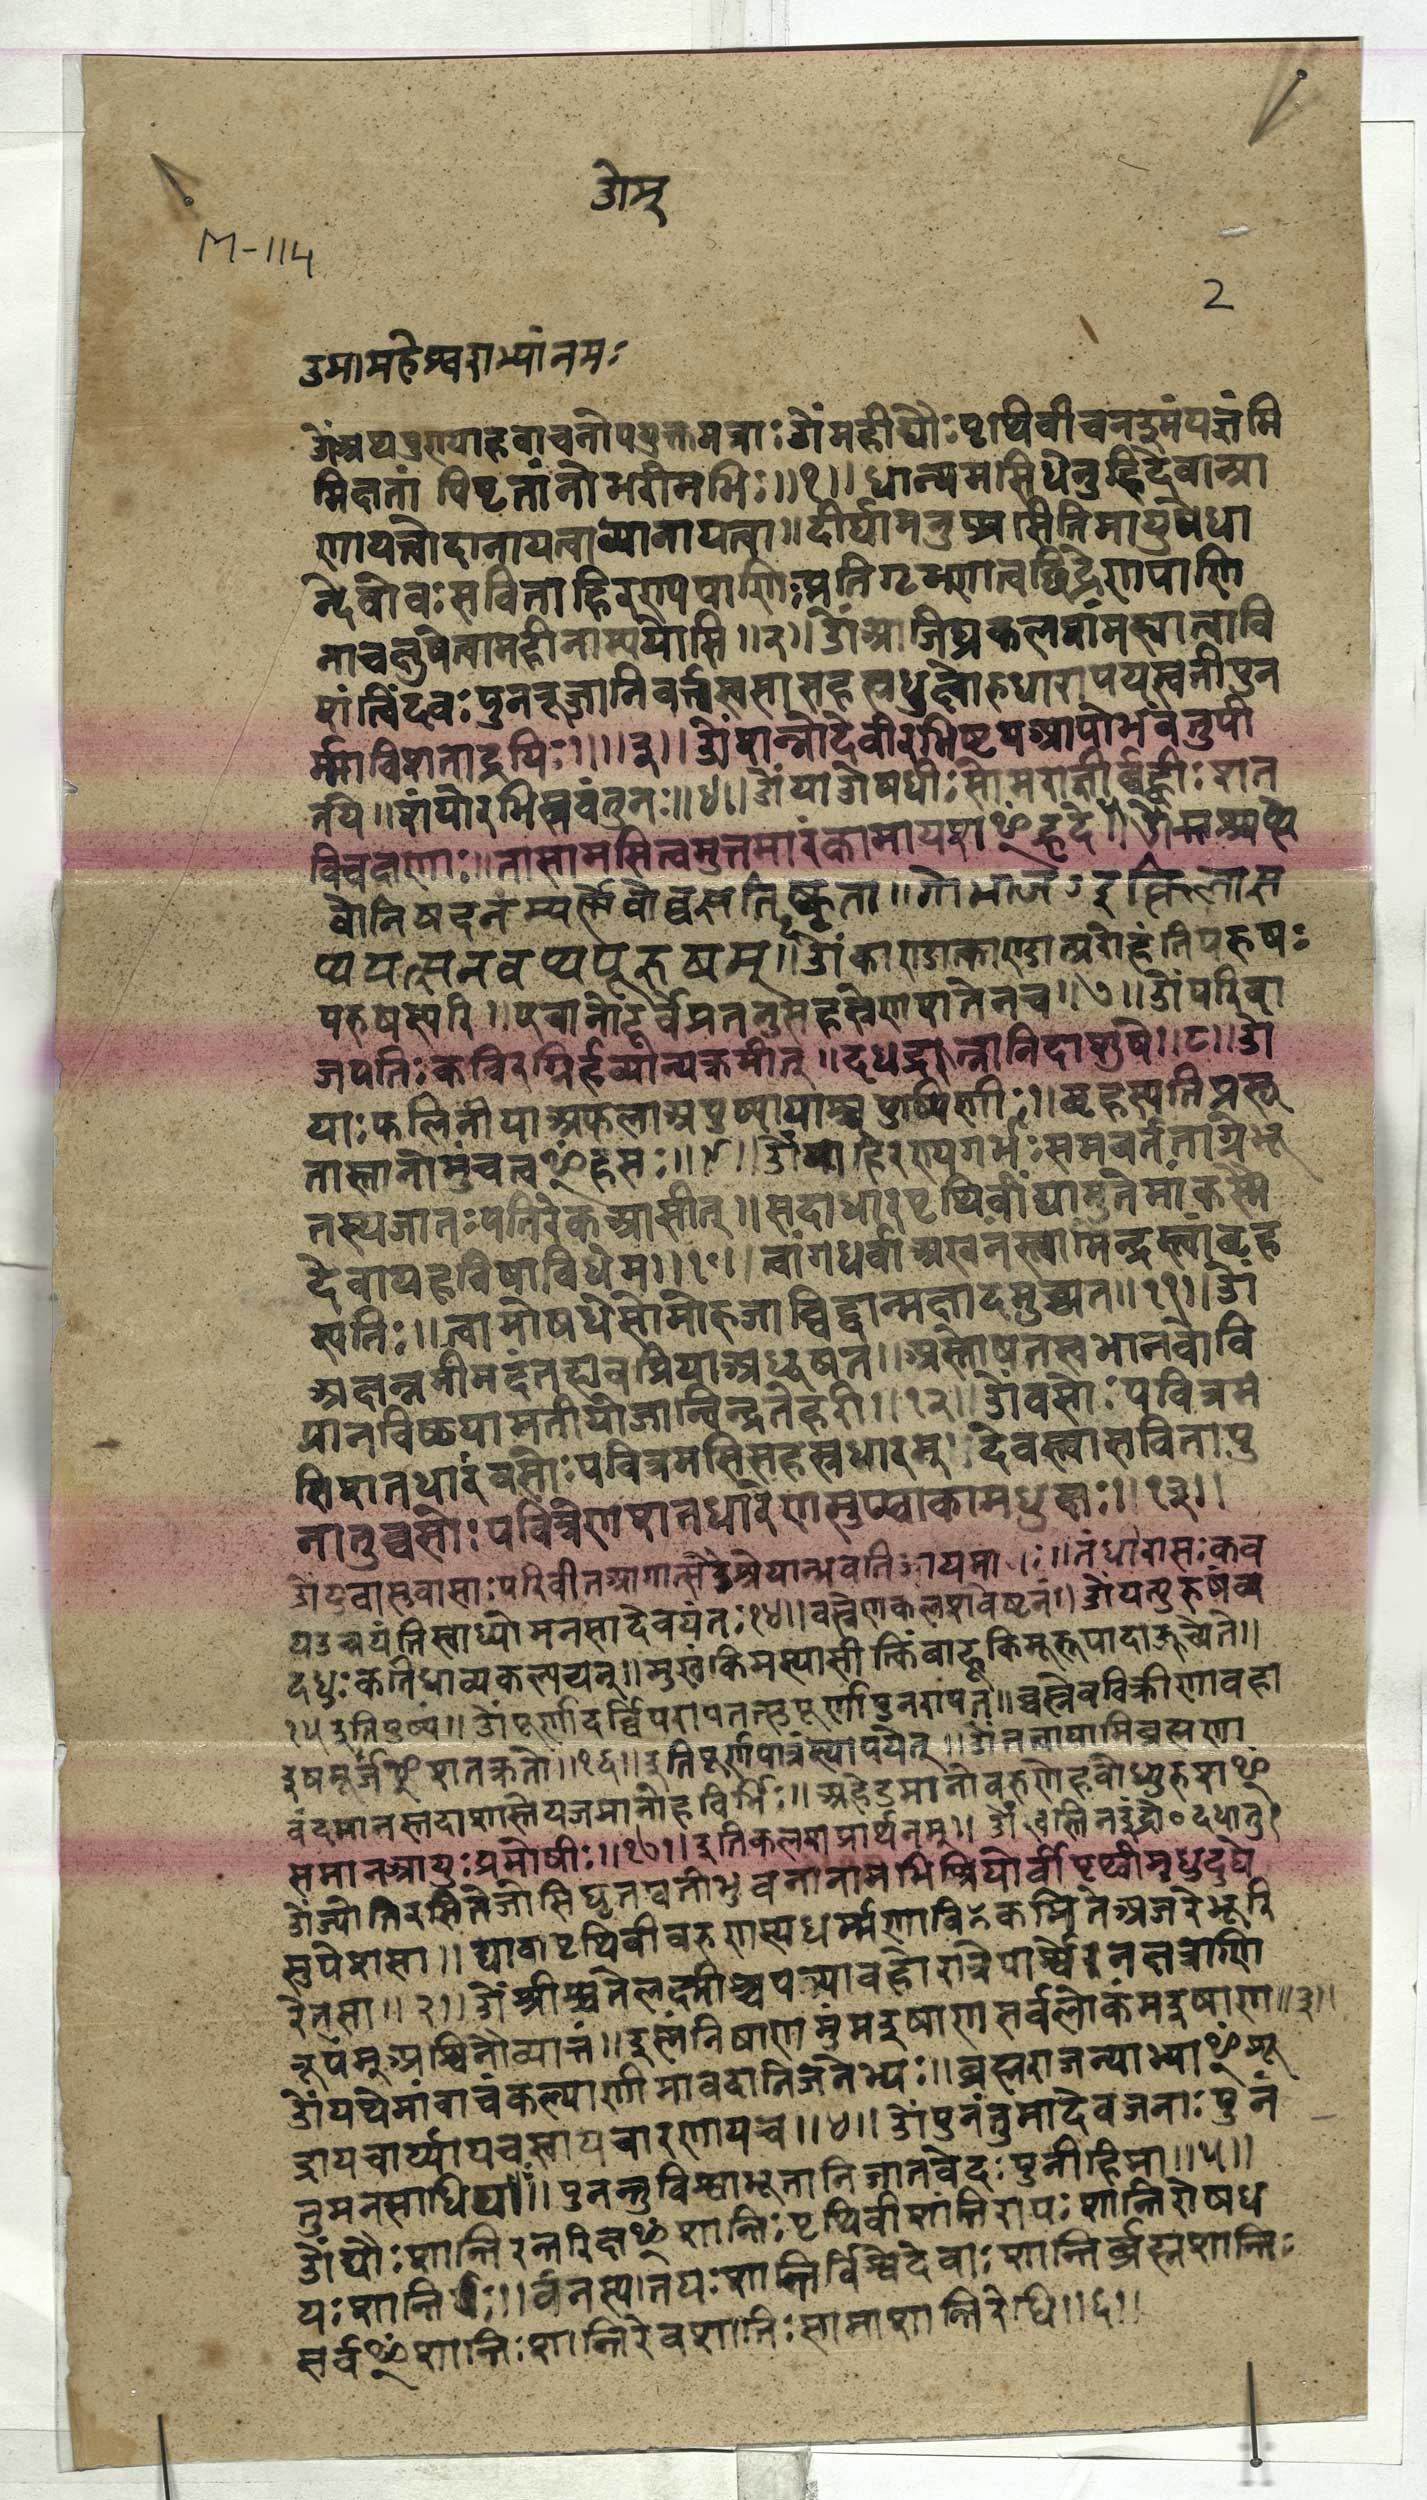 ओम्
M-114
2
उमामहेश्वराभ्यांनमः
ओंअथपुण्याहवाचनोपयुक्तमन्त्राः ओंमहीद्यौःपृथिवीचनइमंयज्ञंमि
मिक्षतां पिपृतांनोभरीमभिः॥१॥ धान्यमसिधिनुहिदेवान्प्रा
णायत्वोदानायत्वाव्यानायत्वा॥दीर्घामनुप्रसितिमायुषेधा
न्देवोवःसविताहिरण्यपाणिःप्रतिगृभ्णात्वछिद्रेणपाणि
नाचक्षुषेत्वामहीनाम्पयोसि॥२॥ओंआजिघ्रकलशंमह्यात्वावि
शंत्विंदवःपुनरूर्जानिवर्त्तस्वसासहस्रधुक्ष्वोरुधारापयस्वतीपुन
र्म्माविशताद्रयिः॥३॥ओंशन्नोदेवीरभिष्टयआपोभवन्तुपी
तये॥शंयोरभिस्रवंतुनः॥४॥ओंयाओषधीःसोमराज्ञीर्बह्वीःशत
विचक्षणाः॥तासामसित्वमुत्तमारंकामायशᳪहृदे॥ओंअश्वत्थे
वोनिषदनंपर्णेवोवसतिष्कृता॥गोभाजऽइत्किलास
थयत्सनवथपूरुषम्॥ओंकाण्डात्काण्डात्प्ररोहंतिपरुषः
परुषस्परि॥एवानोदूर्वेप्रतनुसहस्रेणशतेनच॥७॥ओंपरिवा
जपतिःकविरग्निर्हव्यान्यक्रमीत्॥दधद्रत्नानिदाशुषे॥८॥ओं
याःफलिनीर्याअफलाअपुष्पायाश्चपुष्पिणीः॥बृहस्पतिप्रसू
तास्तानोमुंचत्वᳪहसः॥९॥ओंहिरण्यगर्भःसमवर्तताग्रेभू
तस्यजातःपतिरेकआसीत्॥सदाधारपृथिवींद्यामुतेमांकस्मै
देवायहविषाविधेम॥१०॥त्वांगंधर्वाअखनंस्त्वामिन्द्रस्त्वांबृह
स्पतिः॥त्वामोषधेसोमोराजाविद्वान्यक्ष्मादमुच्यत॥११॥ओं
अक्षन्नमीमदंतह्यवप्रियाअधूषत॥अस्तोषतस्वभानवोवि
प्रानविष्ठयामतीयोजान्विन्द्रतेहरी॥१२॥ओंवसोःपवित्रम
सिशतधारंवसोःपवित्रमसिसहस्रधारम्॥देवस्त्वासवितापु
नातुवसोःपवित्रेणशतधारेणसुप्वाकामधुक्षः॥१३॥
ओंयुवासुवासाःपरिवीतआगात्सउश्रेयान्भवतिजायमानः॥तंधीरासःकव
यउन्नयंतिस्वाध्योमनसादेवयंतः१४॥वस्त्रेणकलशवेष्टनं॥ओंयत्पुरुषंव्य
दधुःकतिधाव्यकल्पयन्॥मुखंकिमस्यासीत्किंबाहूकिमूरूपादाऊच्येते॥
१५इतिपुष्पं॥ओंपूर्णादर्विपरापतसुपूर्णापुनरापत॥वस्नेवविक्रीणावहा
इषमूर्जᳪशतक्रतो॥१६॥इतिपूर्णपात्रंस्थापयेत्॥ओंतत्वायामिब्रह्मणा
वंदमानस्तदाशास्तेयजमानोहविर्भिः॥अहेडमानोवरुणेहबोध्युरुशᳪ
समानआयुःप्रमोषीः॥१७॥इतिकलशप्रार्थनम्॥ ओंस्वस्तिनइंद्रो०दधातु१
ओंज्योतिरसितेजोसिघृतवतीभुवनानामभिश्रियोर्वीपृथ्वीमधुदुघे
सुपेशसा॥द्यावापृथिवीवरुणस्यधर्म्मणाविष्कभितेअजरेभूरि
रेतसा॥२॥ओंश्रीश्चतेलक्ष्मीश्चपत्न्यावहोरात्रेपार्श्वेनक्षत्राणि
रूपमश्विनौव्यात्तं॥इष्णंनिषाणामुंमइषाणसर्वलोकंमइषाण॥३॥
ओंयथेमांवाचंकल्याणीमावदानिजनेभ्यः॥ब्रह्मराजन्याभ्याᳪशू
द्रायचार्य्यायचस्वायचारणायच॥४॥ओंपुनंतुमादेवजनाःपुनं
तुमनसाधियः॥पुनन्तुविश्वाभूतानिजातवेदःपुनीहिमा॥५॥
ओंद्यौःशान्तिरन्तरिक्षᳪशान्तिःपृथिवीशांतिरापःशान्तिरोषध
यःशान्तिः॥वनस्पतयःशान्तिर्विश्वेदेवाःशान्तिर्ब्रह्मशान्तिः
सर्वᳪशान्तिःशान्तिरेवशान्तिःसामाशान्तिरेधि॥६॥